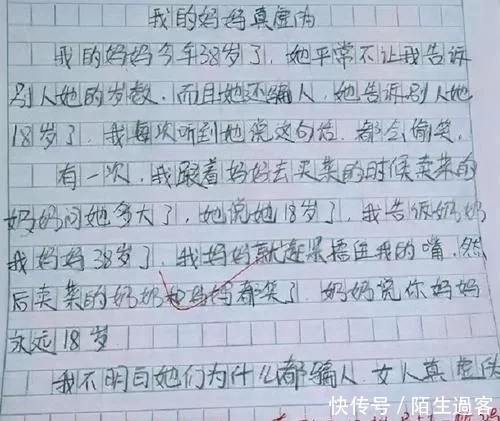 我的妈妈真虚伪
我的妈妈今年38岁了，她平常不让我告诉
别人她的岁数．而且她还骗人，她告诉别人她
18岁了，我每次听到她说这句话．都会偷笑．
有一次，我跟着妈妈去买菜的时候卖菜的
奶奶问她多大了，她说她18岁了，我告饭奶奶
我妈妈38岁了．我妈妈就赶紧捂住我的嘴，然
后卖菜的奶奶和妈妈都笑了．奶奶说你妈妈
永远18岁
我不明白她们为什么都骗人．女人真虚伪
快传号/陌生過客